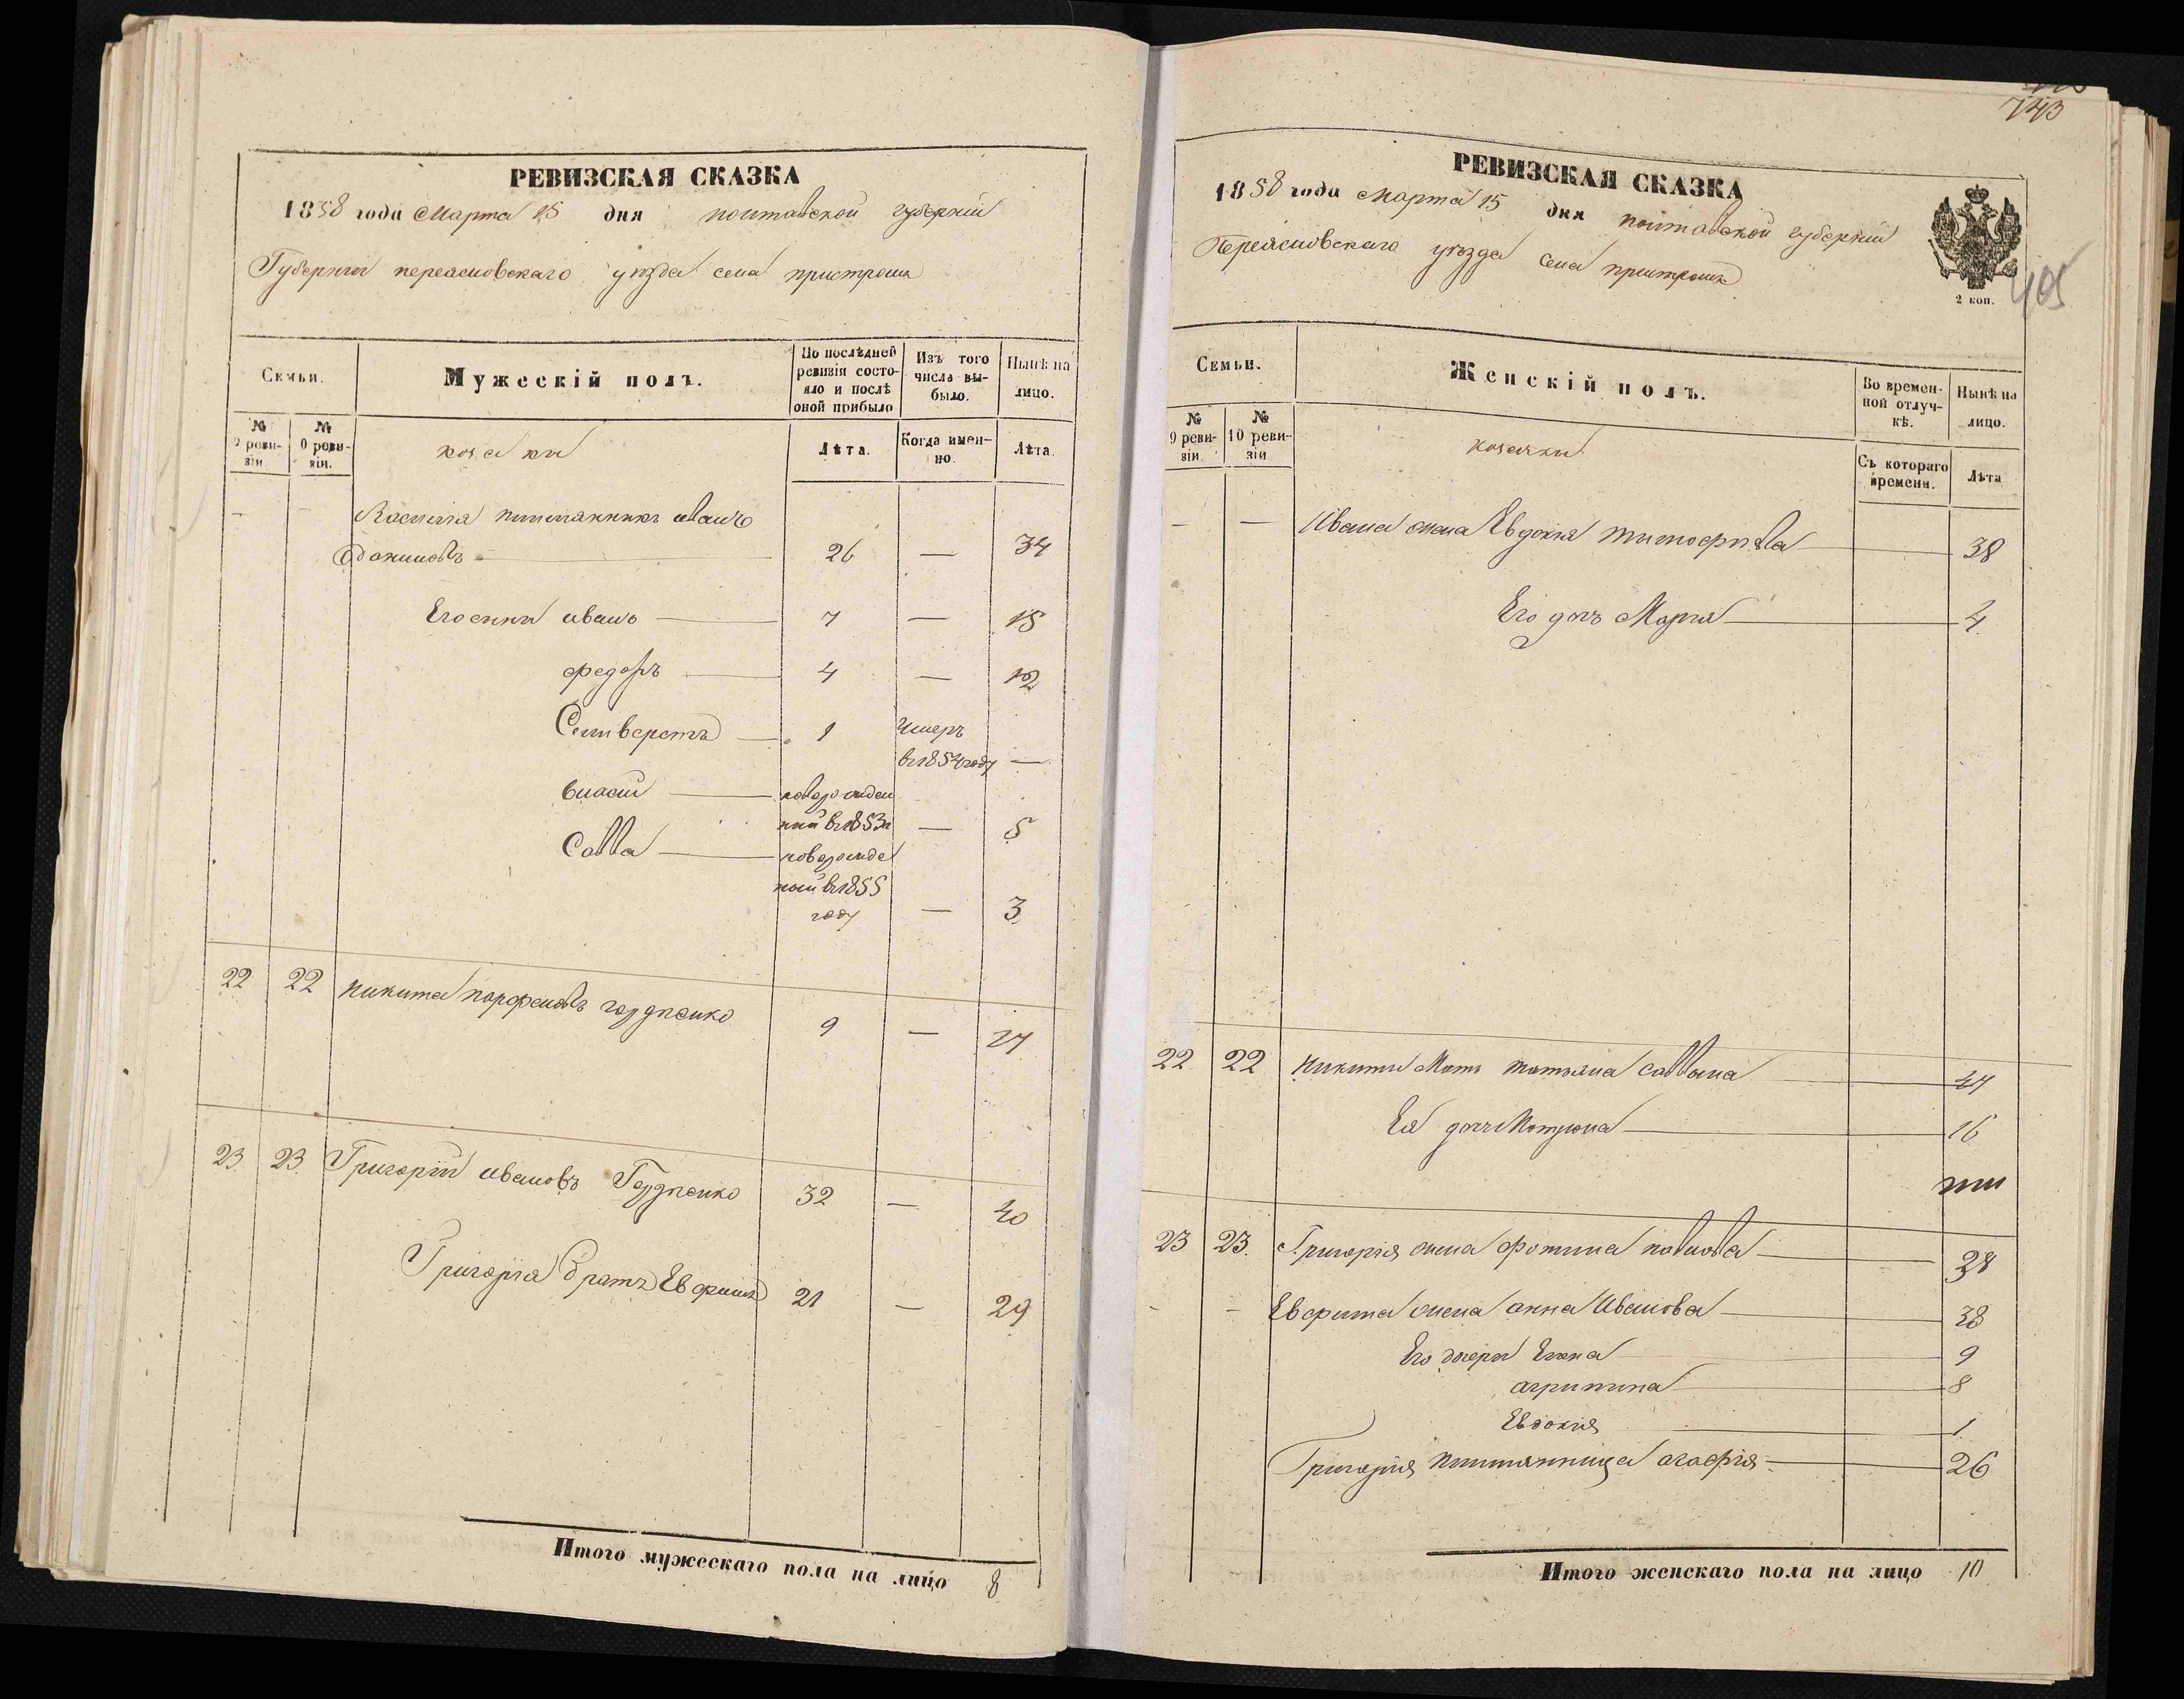 РЕВИЗСКАЯ СКАЗКА
1858 года Марта 15 дня полтавской губернии
Губернии переясловскаго уезда села пристромъ
Семьи.
Мужескій полъ.
По послѣдней ревизіи состояло и послѣ оной прибыло
Изъ того числа выбыло.
Нынѣ на лицо.
№ 9 ревизіи
№ 0 ревизіи.
козаки
Лѣта.
Когда именно.
Лѣта.
— — племянникъ иванъ
26 — 34
Его сины иванъ 7 — 15
федоръ 4 — 12
Силиверстъ 1 Умеръ
в 1854 году —
власий новорожден
ний в 1853 — 5
Савва новорожде
ный в 1855
году — 3
22 22 никита парфеновъ гордиенко 9 — 17
23 23 Григорий ивановъ Гордиенко 32 — 40
Григория братъ Евфимъ 21 — 29
Итого мужескаго пола на лицо 8
743
РЕВИЗСКАЯ СКАЗКА
1858 года марта 15 дня полтавской губернии
Переясловскаго уезда села пристромъ
2 коп.
405
Семьи.
Женскій полъ.
Во временной отлучкѣ.
Нынѣ на лицо.
№ 9 ревизіи.
№ 10 ревизіи
козачки
Съ котораго времени.
Лѣта
— — Ивана жена Евдокия тимофиева 38
Его дочь Мария 4
22 22 никиты мать татьяна саввина 47
Ея дочь мотрона 16
23 23 Григория жена фотина павлова 38
- - Евфима жена анна Иванова 28
Его дочери Елена 9
агрипина 8
Евдокия 1
Григория племянница агафия 26
Итого женскаго пола на лицо 10